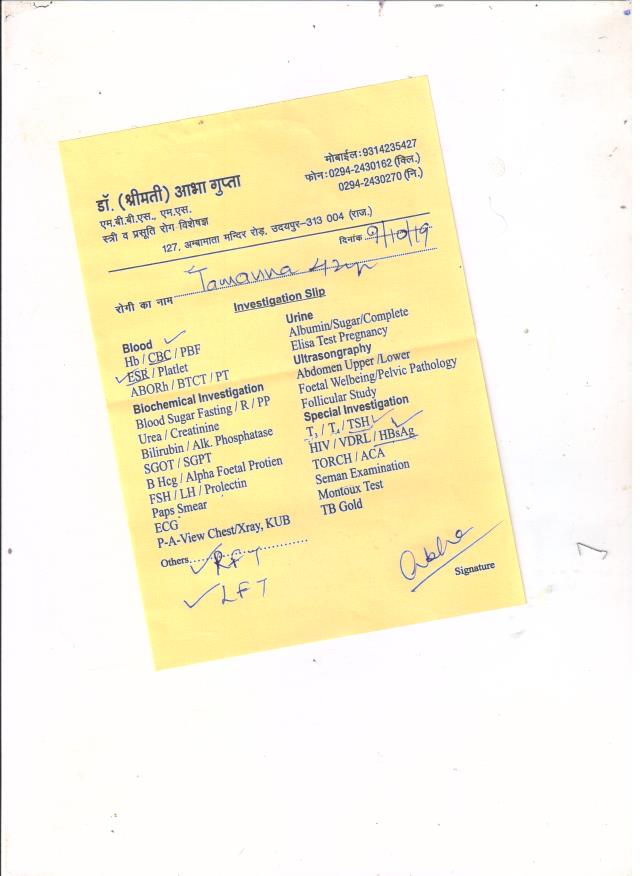 डॉ. (श्रीमती) आभा गुप्ता
एम.बी.बी.एस., एम.एस.
स्त्री व प्रसूति रोग विशेषज्ञ
मोबाईल:9314235427
फोन:0294-2430162 (क्लि.)
0294-2430270 (नि.)
127, अम्बामाता मन्दिर रोड़, उदयपुर–313 004 (राज.)
दिनांक 9/10/19
रोगी का नाम Tamanna
Investigation Slip
Blood
Hb / CBC / PBF
ESR / Platlet
ABORh / BTCT / PT
Biochemical Investigation
Blood Sugar Fasting / R / PP
Urea / Creatinine
Bilirubin / Alk. Phosphatase
SGOT / SGPT
B Hcg / Alpha Foetal Protien
FSH / LH / Prolectin
Paps Smear
ECG
P-A-View Chest/Xray, KUB
Others
LFT
Urine
Albumin/Sugar/Complete
Elisa Test Pregnancy
Ultrasongraphy
Abdomen Upper /Lower
Foetal Welbeing/Pelvic Pathology
Follicular Study
Special Investigation
T3 / T4 / TSH
HIV / VDRL / HBsAg
TORCH / ACA
Seman Examination
Montoux Test
TB Gold
Signature